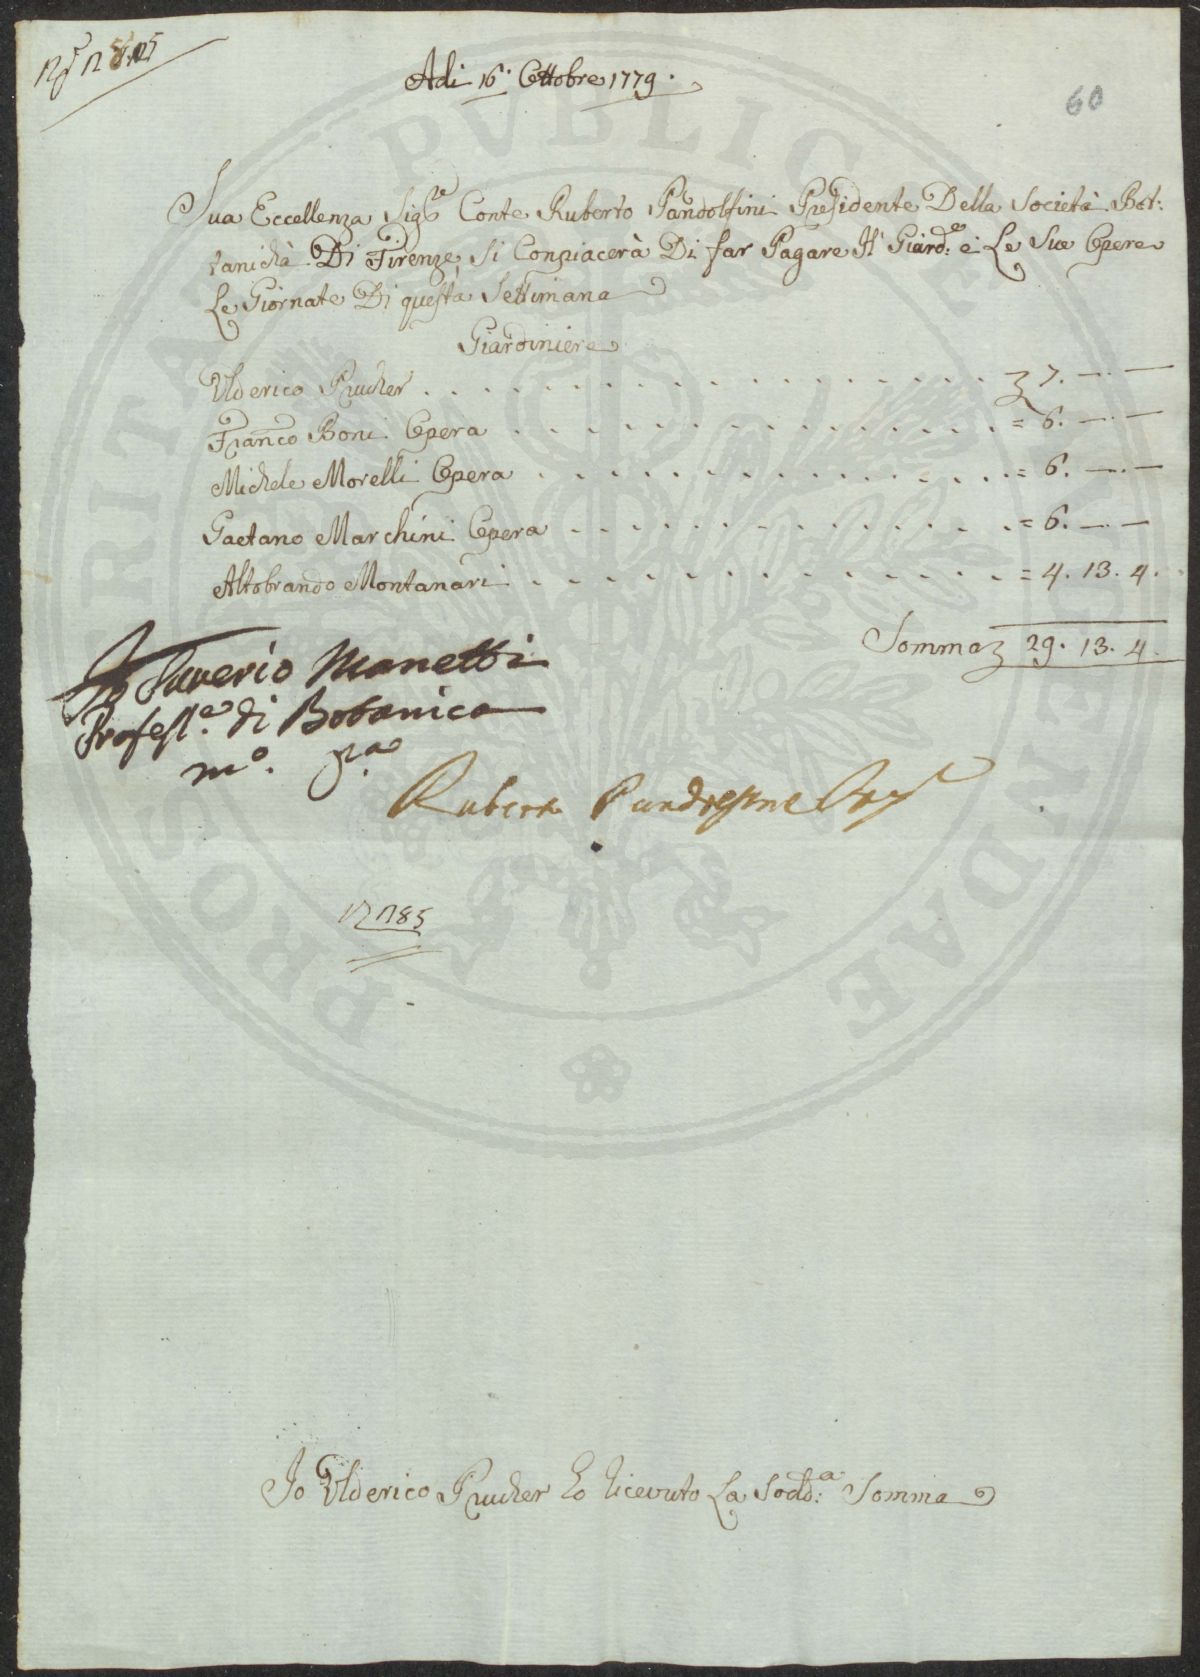 Adi 16. Ottobre 1779.
60
Sua Eccellenza Sigre Conte Ruberto Pandolfini Presidente Della Società Bot:
tanicha Di Firenze, Si Conpiacerà Di far Pagare Il Giard:e e Le Sue Opere
Le Giornate Di questa Settimana
Giardiniere
Ulderico Prucher . . . 7. — . —
Franco Boni Opera . . . = 6. — . —
Michele Morelli Opera . . . = 6. — . —
Gaetano Marchini Opera . . . = 6. — . —
Altobrando Montanari . . . = 4. 13. 4.
Somma 29. 13. 4.
Io Saverio Manetti
Profess.e di Botanica
mo. pa
Ruberto Pandolfini
Io Ulderico Prucher ho ricevuto La Sodd:a Somma
PROSPERITATI PVBLICAE AVGENDAE